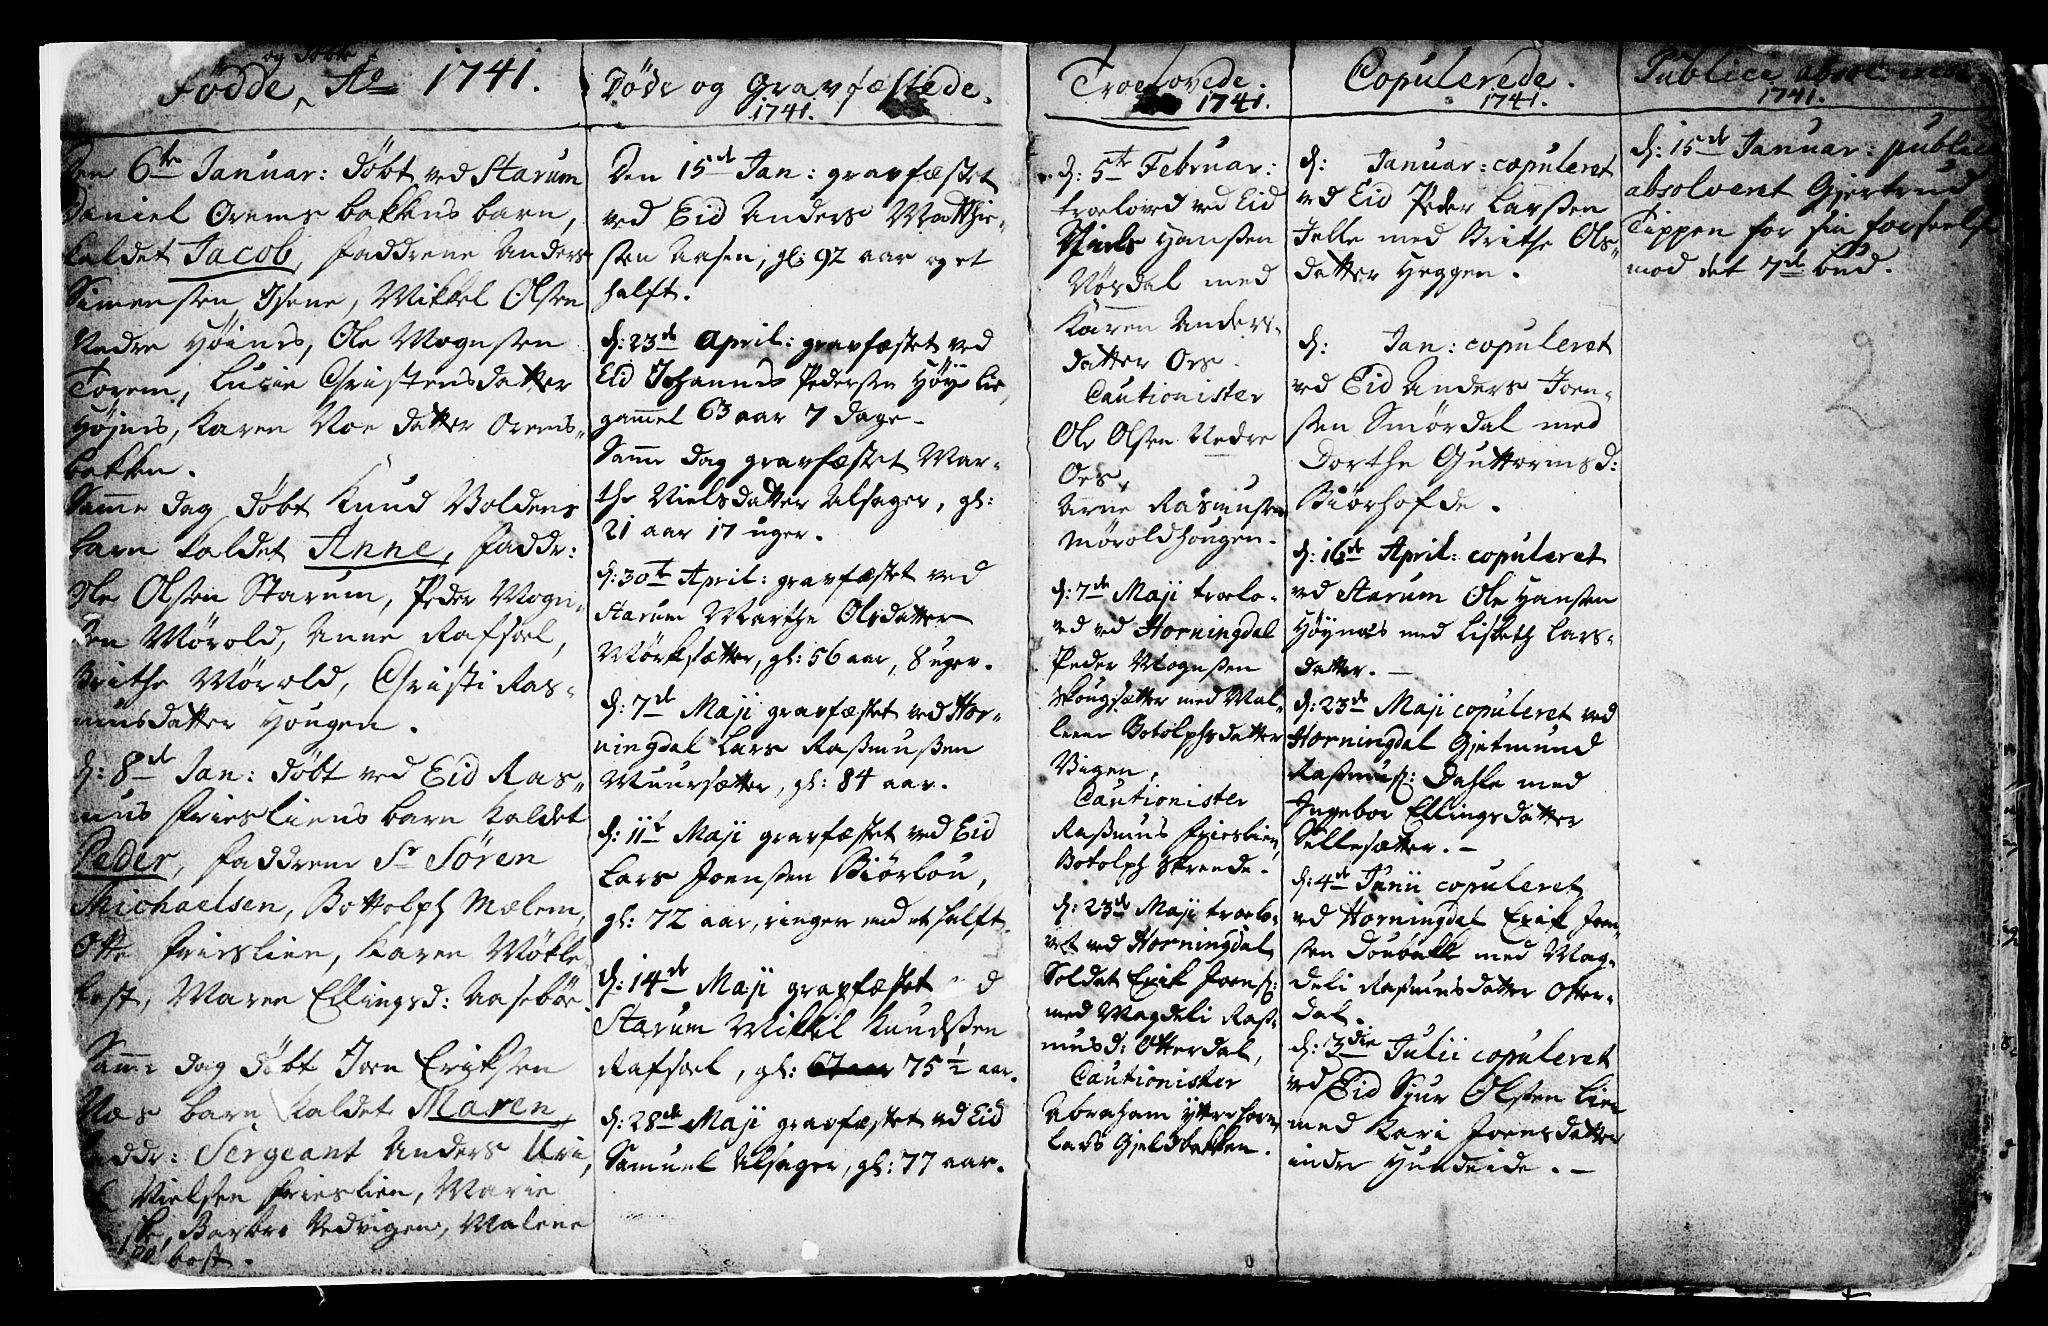 og döbte
Födde, Ao 1741.
Den 6te Januar: döbt ved Starum
Daniel Orems bakkens barn,
kaldet Jacob, faddrene Anders
Simenssen Isene, Mikkel Olsen
Nedre Höinæs, Ole Mognssen
Torem, Lucie Christensdatter
Höjnes, Karen Roe datter Orems,,
bakken.
Samme dag döbt Knud Boldens
barn kaldet Anne, faddr:
Ole Olsen Starum, Peder Mogn,,
sen Mörold, Anne Rafssæl,
Brithe Mörold, Christi Ras-
musdatter Hougen.
d: 8de Jan: döbt ved Eid Ras,,
mus Frieslienes barn kaldet
Peder, faddrene Sr Sören
Michaelsen, Bottolph Mælem,
Otte Frieslien, Karen Mökle
bost, Maren Ellingsd: Aasebøe.
Samme dag döbt Joen Eriksen
Næs barn kaldet Maren,
faddr: Sergeant Anders Uri,
Nielsen Frieslien, Marie
Barbro Nedvigen, Malene
bost.
Döde og Gravfæstede.
1741.
Den 15de Jan: gravfæstet
ved Eid Anders Matthie-
sen Aasen, gl: 92 aar og et
halft.
d: 23de April: gravfæstet ved
Eid Johannes Pedersen Höye lie,
gammel 63 aar 7 dage.
Samme dag gravfæstet Mar-
the Nielsdatter Alsager, gl:
21 aar 17 uger.
d: 30te April: gravfæstet ved
Starum Marthe Olsdatter
Mörksætter, gl: 56 aar, 8 uger.
d: 7de Maji gravfæstet ved Hor-
ningdal Lars Rasmussen
Muursætter, gl: 84 aar.
d: 11te Maji gravfæstet ved Eid
Lars Joenssen Biörlou,
gl: 72 aar, ringer end et halft.
d: 14de Maji gravfæstet d
Starum Mikkil Knudssen
Rafssæl, gl: 75 1/2 aar.
d: 28de Maji gravfæstet ved Eid
Samuel Alsager, gl: 77 aar.
Troelovede.
1741.
d: 5te Februar:
troeloved ved Eid
Niels Hanssen
Nösdal med
Karen Anders-
datter Oes.
Cautionister
Ole Olsen Nedre
Oes,
Arne Rasmussen
Möroldhougen.
d: 7de Maji troelo-
ved ved Horningdal
Peder Mognssen
Skougsætter med Mal-
leene Botolphsdatter
Vigen,
Cautionister
Rasmus Frieslien,
Botolph Skreede.
d: 23de Maji troelo-
vet ved Horningdal
Soldat Erik Joens:
med Magdeli Ras-
musd: Otterdal,
Cautionister
Abraham Yttrehorn,
Lars Gjeldsbakken.
Copulerede.
1741.
d: Januar: copuleret
ved Eid Peder Larssen
Jelle med Brithe Ols,,
datter Heggen.
d: Jan: copuleret
ved Eid Anders Joen-
sen Smördal med
Dorthe Guttormsd:
Biörhofde.
d: 16de April: copuleret
ved Starum Ole Hanssen
Höynæs med Lisbeth Lars-
datter.
d: 23de Maji copuleret ved
Horningdal Gjetmund
Rasmus: Dahle med
Ingebor Ellingsdatter
Sellesætter. -
d: 4de Junii copuleret
ved Horningdal Erik Joen-
sen Doubakke med Mag-
deli Rasmusdatter Otter-
dal.
d: 3die Julii copuleret
ved Eid Sjur Olssen Lien
med Kari Joensdatter
indre Hundeide. -
Publice absol
1741.
d: 15de Januar: publice
absolveret Gjertrud
Tippen for sin forseelse
mod det 7de bud.
2